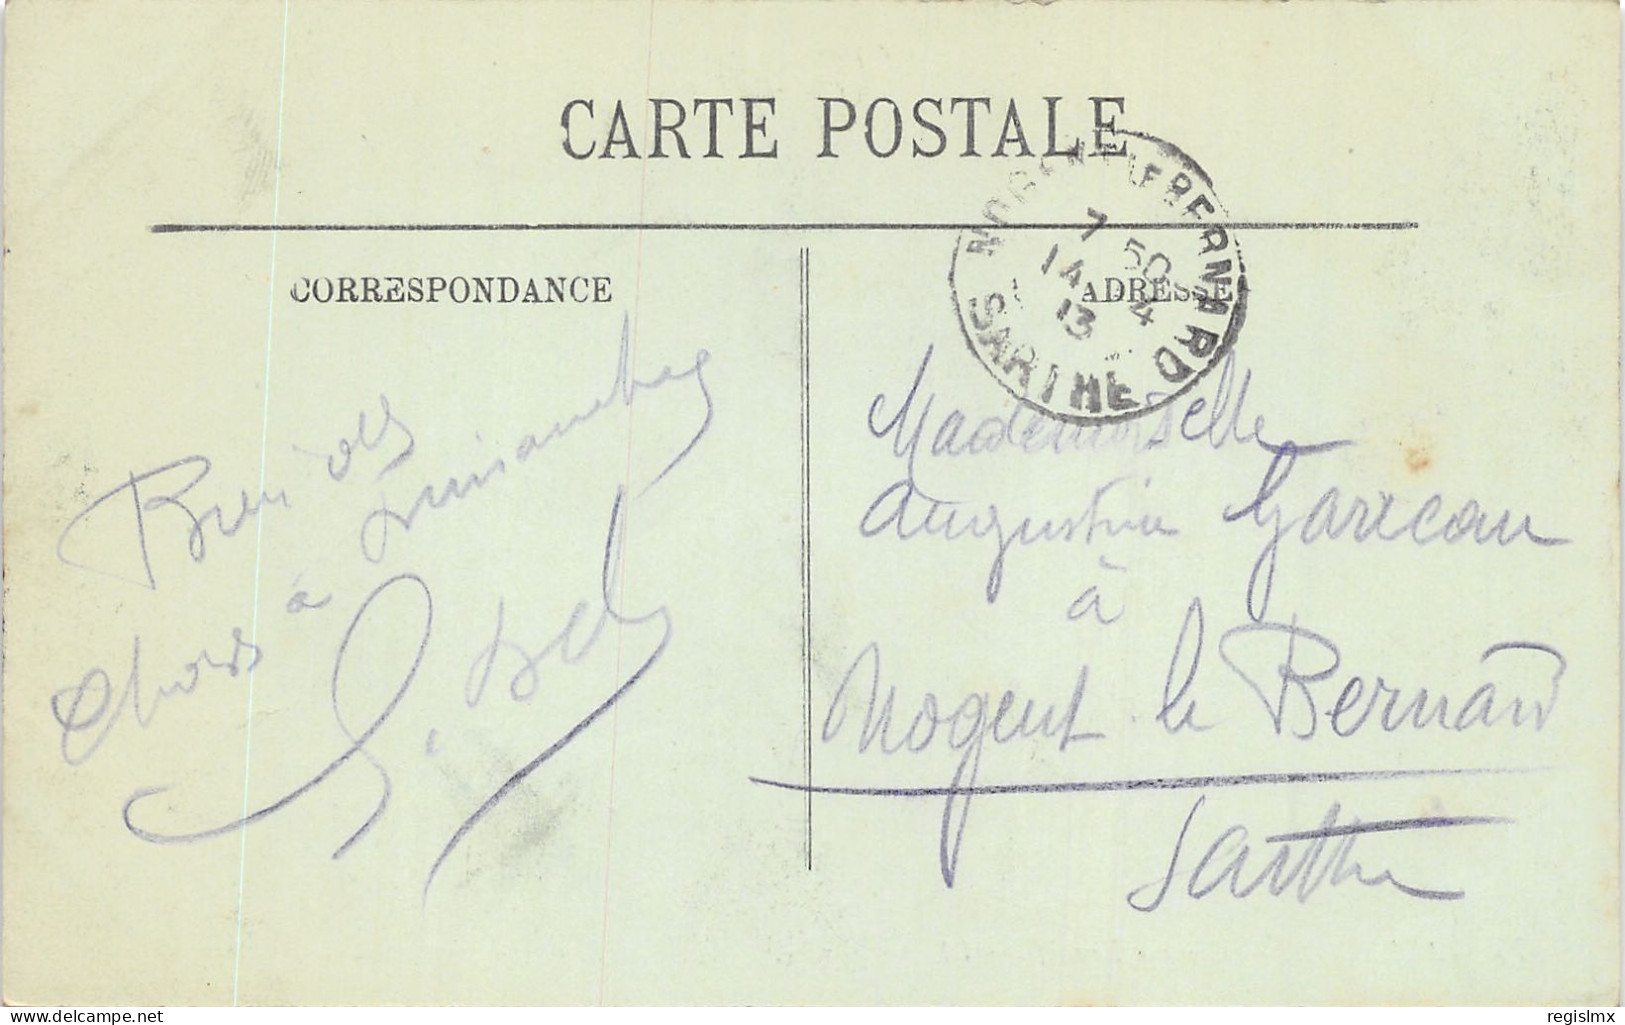 CARTE POSTALE
CORRESPONDANCE
ADRESSE
NOGENT-LE-BERNARD
7 50
14 4
13
SARTHE
Bien des
choses à dimanche
Mademoiselle
Augustine Garreau
à
Nogent le Bernard
Sarthe
www.delcampe.net
regislmx